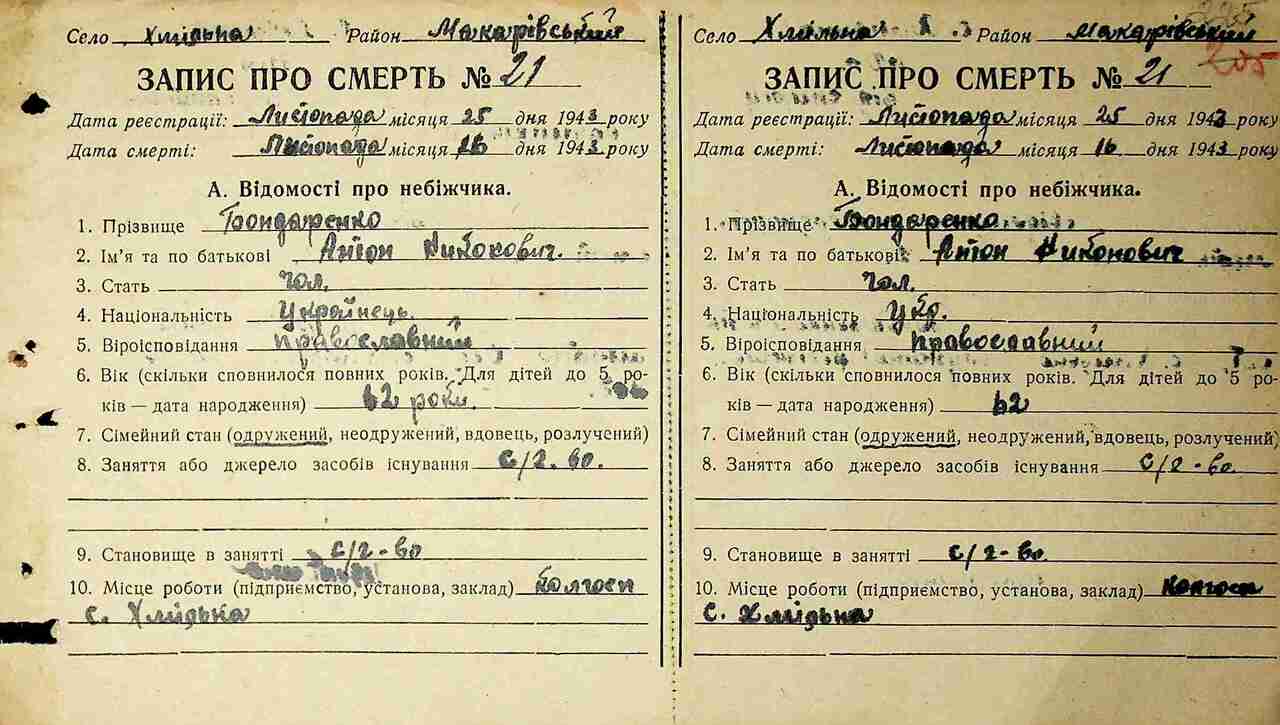 Село Хмільна Район Макарівський
ЗАПИС ПРО СМЕРТЬ № 21
Дата реєстрації: Листопада місяця 25 дня 1943 року
Дата смерті: Листопада місяця 16 дня 1943 року
А. Відомості про небіжчика.
1. Прізвище Бондаренко
2. Ім'я та по батькові Антон
3. Стать чол.
4. Національність Украйнець.
5. Віроісповідання православний
6. Вік (скільки сповнилося повних років. Для дітей до 5 ро-
ків — дата народження) 62 роки.
7. Сімейний стан (одружений, неодружений, вдовець, розлучений)
8. Заняття або джерело засобів існування с/г-во.
9. Становище в занятті с/г-во
10. Місце роботи (підприємство, установа, заклад) колгосп
с. Хмільна
Село Хмільна Район Макарівський
205
ЗАПИС ПРО СМЕРТЬ № 21
Дата реєстрації: Листопада місяця 25 дня 1943 року
Дата смерті: Листопада місяця 16 дня 1943 року
А. Відомості про небіжчика.
1. Прізвище Бондаренко
2. Ім'я та по батькові Антон Никонович
3. Стать чол.
4. Національність укр.
5. Віроісповідання православний
6. Вік (скільки сповнилося повних років. Для дітей до 5 ро-
ків — дата народження) 62
7. Сімейний стан (одружений, неодружений, вдовець, розлучений)
8. Заняття або джерело засобів існування с/г-во.
9. Становище в занятті с/г-во.
10. Місце роботи (підприємство, установа, заклад) колгосп
с. Хмільна